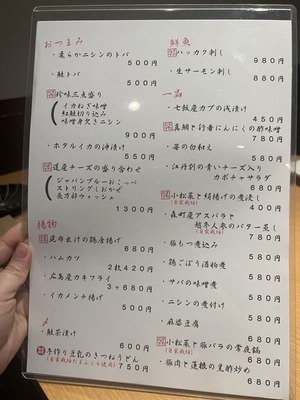 おつまみ
・柔らかニシンのトバ
500円
・鮭トバ
500円
珍味三点盛り
イカねぎ味噌
紅鮭切り込み
味噌身欠きニシン
900円
・ホタルイカの沖漬
550円
道産チーズの盛り合わせ
ジャパンブルーおこっぺ
ストリングしおかぜ
長万部ウォッシュ
1300円
揚物
昆布出汁の鶏唐揚げ
680円
・ハムカツ
2枚420円
・広島産カキフライ
3ヶ680円
・イカメンチ揚げ
〆
・鮭茶漬け
660円
手作り豆乳のきつねうどん
750円
鮮魚
ハッカク刺し
980円
・生サーモン刺し
880円
一品
・七飯産カブの浅漬け
450円
真鯛と行者にんにくの酢味噌
780円
・苺の白和え
550円
・江丹別の青いチーズ入り
カボチャサラダ
580円
小松菜と絹揚げの煮浸し
(自家栽培)
400円
・森町産アスパラと
越冬人参のバター蒸し
(自家栽培)
780円
・豚もつ煮込み
・鶏ごぼう酒粕煮
・サバの味噌煮
・ニシンの煮付け
・麻婆豆腐
小松菜と豚バラの常夜鍋
(自家栽培)
680円
・豚肉と蓮根の黒酢炒め
680円